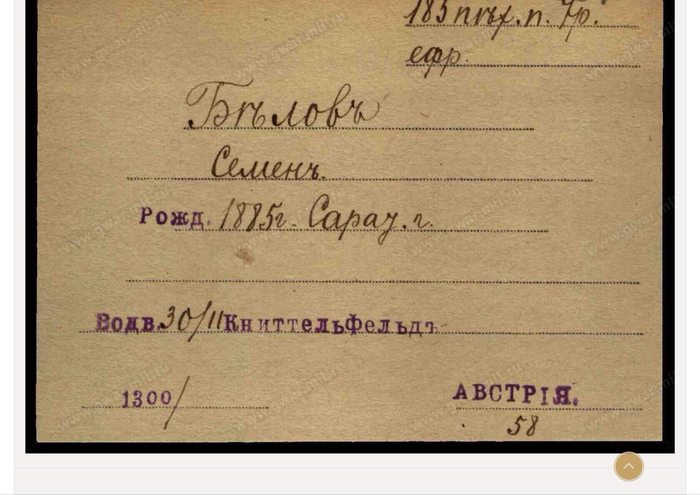 183 пѣх. п. Гр.
ефр.
Бѣловъ
Семенъ.
Рожд. 1885г. Сарат. г.
Водв. 30/II Книттельфельдъ
1300/
АВСТРІЯ.
58